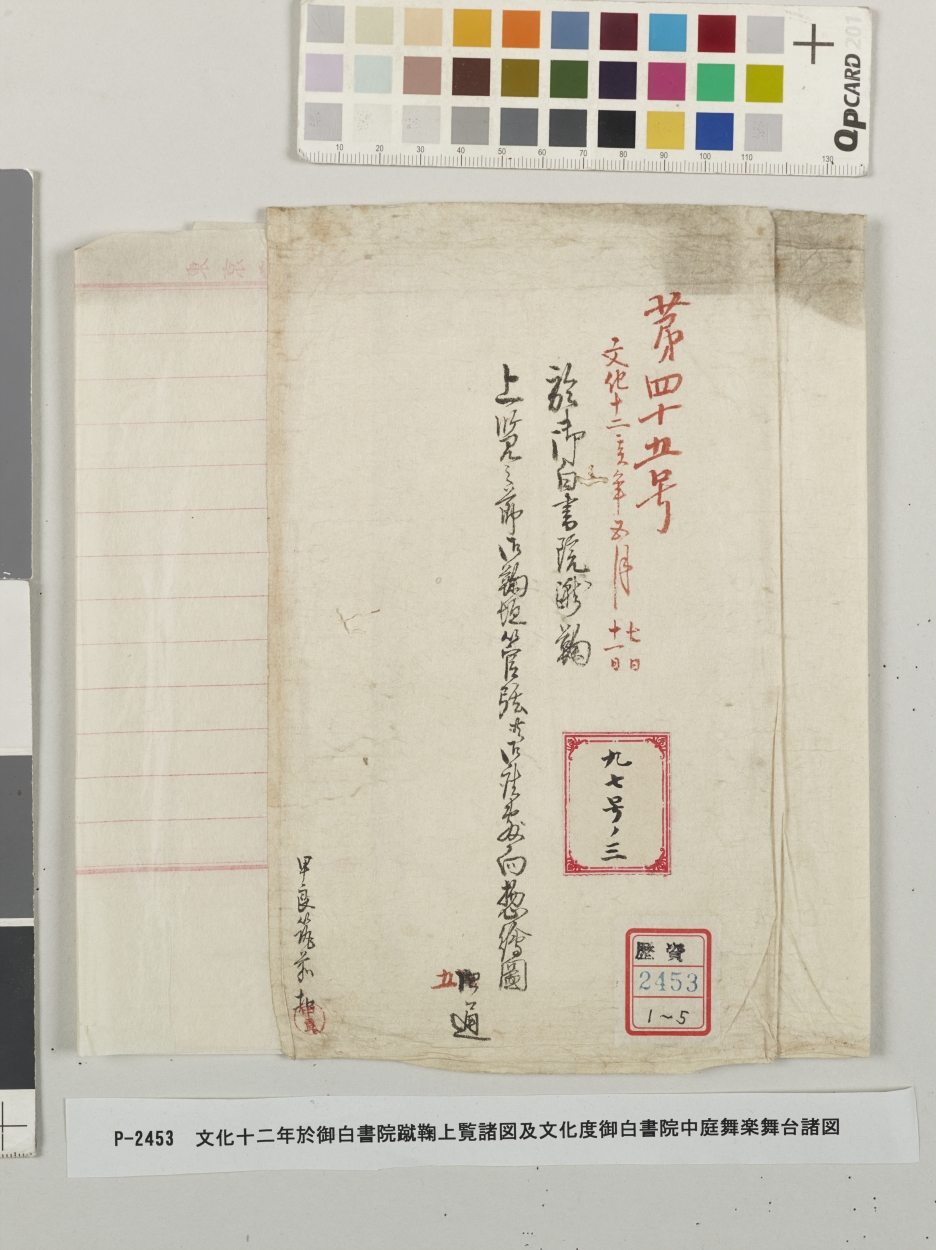 QPCARD 201
10 20 30 40 50 60 70 80 90 100 110 130
東京
第四十五号
文化十二亥年五月
七日
十一日
於御白書院蹴鞠
上覧之節御鞠垣管弦
向惣繪圖
五
通
甲良筑前
九七号ノ三
歴資
2453
1~5
P-2453 文化十二年於御白書院蹴鞠上覧諸図及文化度御白書院中庭舞楽舞台諸図